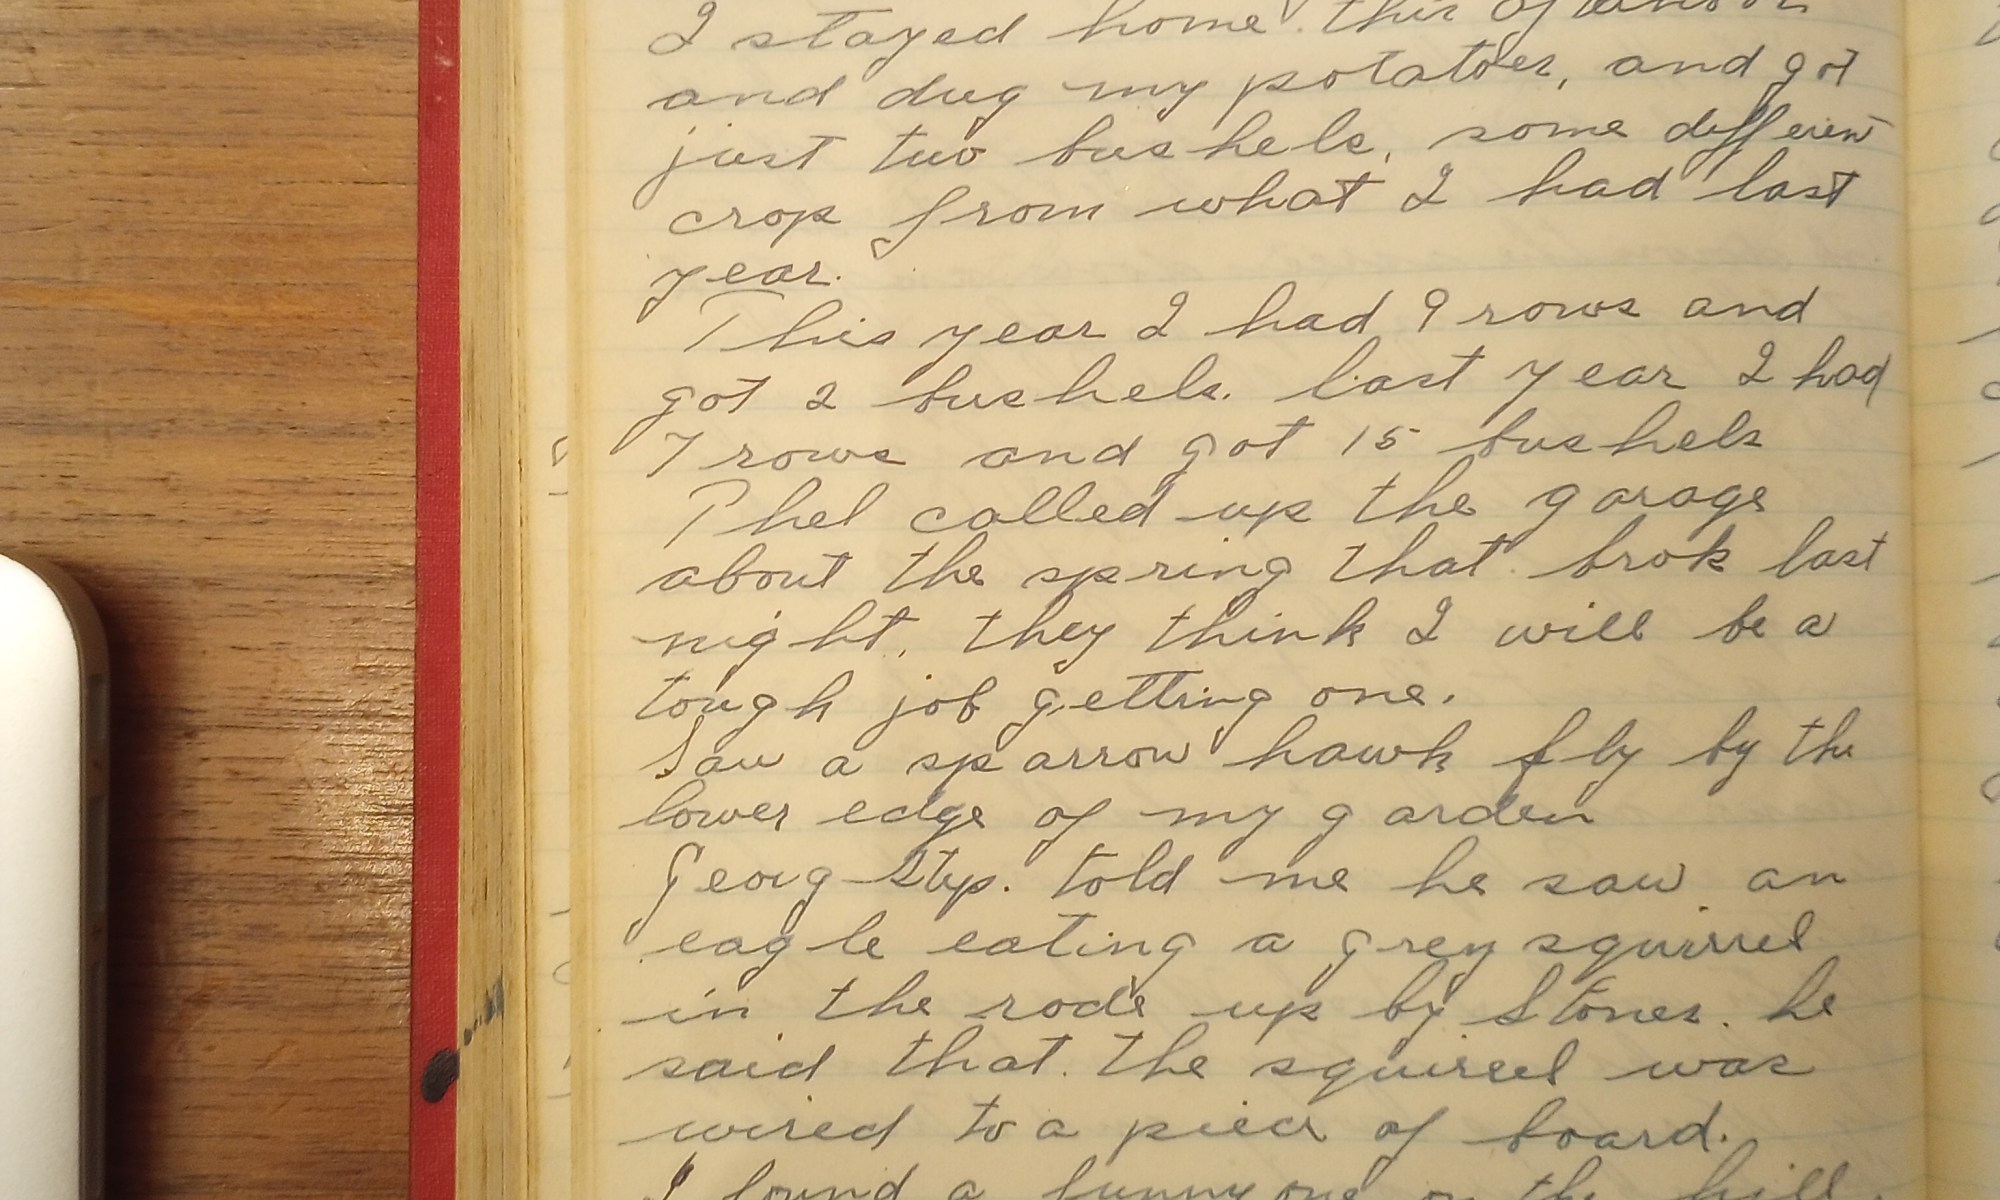 I stayed home this afternoon
and dug my potatoes, and got
just two bushels, some different
crop from what I had last
year.
This year I had 9 rows and
got 2 bushels. last year I had
7 rows and got 15 bushels
Thel called up the garage
about the spring that brok last
night, they think I will be a
tough job getting one.
Saw a sparrow hawk fly by the
lower edge of my garden
Georg Stp. told me he saw an
eagle eating a grey squirrel
in the rode up by Stones. he
said that the squirrel was
wired to a piece of board.
I found a funny one on the hill